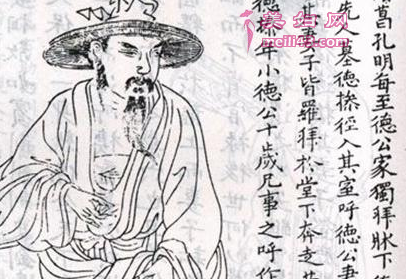 葛孔明每至德公家獨拜牀下
先人墓德操徑入其室呼德公妻
其妻子皆羅拜於堂下奔走
德操年小德公十歲兄事之呼作
美妆网
meili43.com